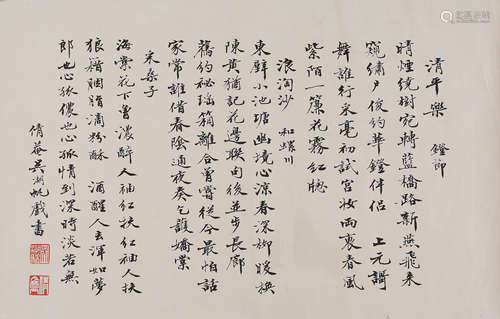 清平樂 鐙節
晴煙繞樹宛轉藍橋路新燕飛來
窺繡戶俊約華鐙伴侶 上元謌
舞誰行采毫初試宮妝雨裏春風
紫陌一簾花霧紅牕
浪淘沙 和蠙川
東厈小池塘幽境心涼春深柳暖
陳黃猶記花邊聯句後並步長廊
舊約祕瑤箱離合曾嘗從今最怕話
家常誰借春陰通夜奏乞護嬌棠
采桑子
海棠花下曾濃醉人袖紅扶紅袖人扶
狼藉胭脂滴粉酥 酒醒人去渾如夢
郎也心孤儂也心孤情到深時淡若無
倩菴吳湖帆戲書